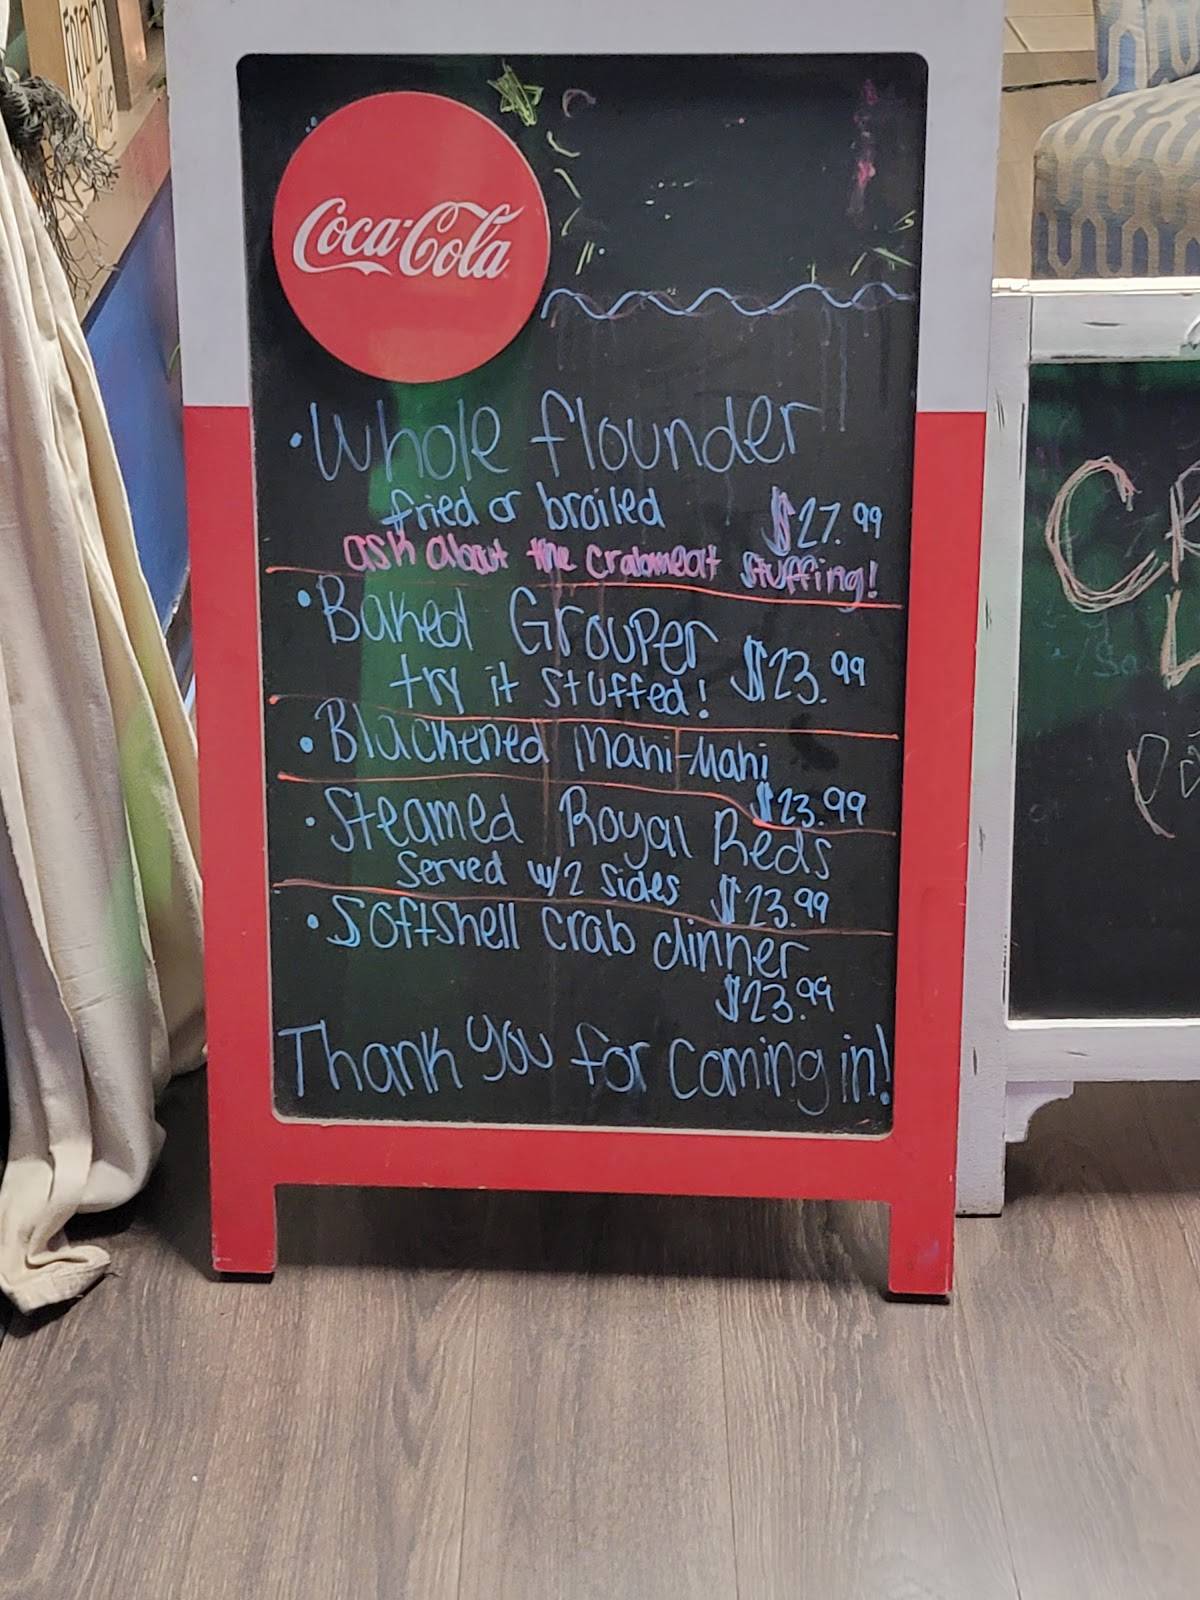 Coca-Cola
• Whole flounder
fried or broiled $27.99
ask about the crabmeat stuffing!
• Baked Grouper
try it stuffed! $23.99
• Blackened Mahi-Mahi
$23.99
• Steamed Royal Reds
Served w/2 sides $23.99
• Softshell crab dinner
$23.99
Thank you for coming in!